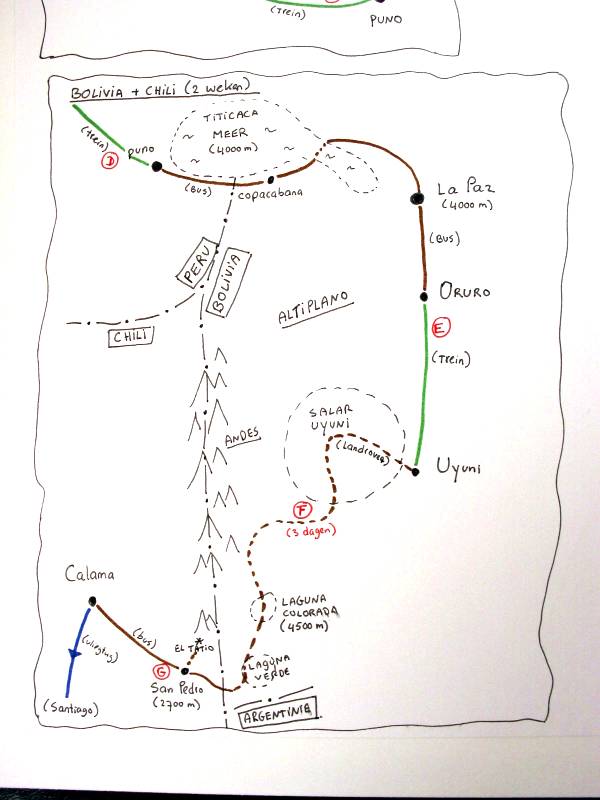 (Trein)
PUNO
BOLIVIA + CHILI (2 weken)
(trein)
D
puno
TITICACA
MEER
(4000m)
(Bus)
copacabana
La Paz
(4000 m)
(Bus)
PERU
BOLIVIA
CHILI
ALTIPLANO
ORURO
E
(Trein)
ANDES
SALAR
UYUNI
(Landrover)
Uyuni
F
(3 dagen)
Calama
(bus)
(vliegtuig)
EL TATIO
LAGUNA
COLORADA
(4500 m)
G
San Pedro
(2700 m)
LAGUNA
VERDE
(Santiago)
ARGENTINIE